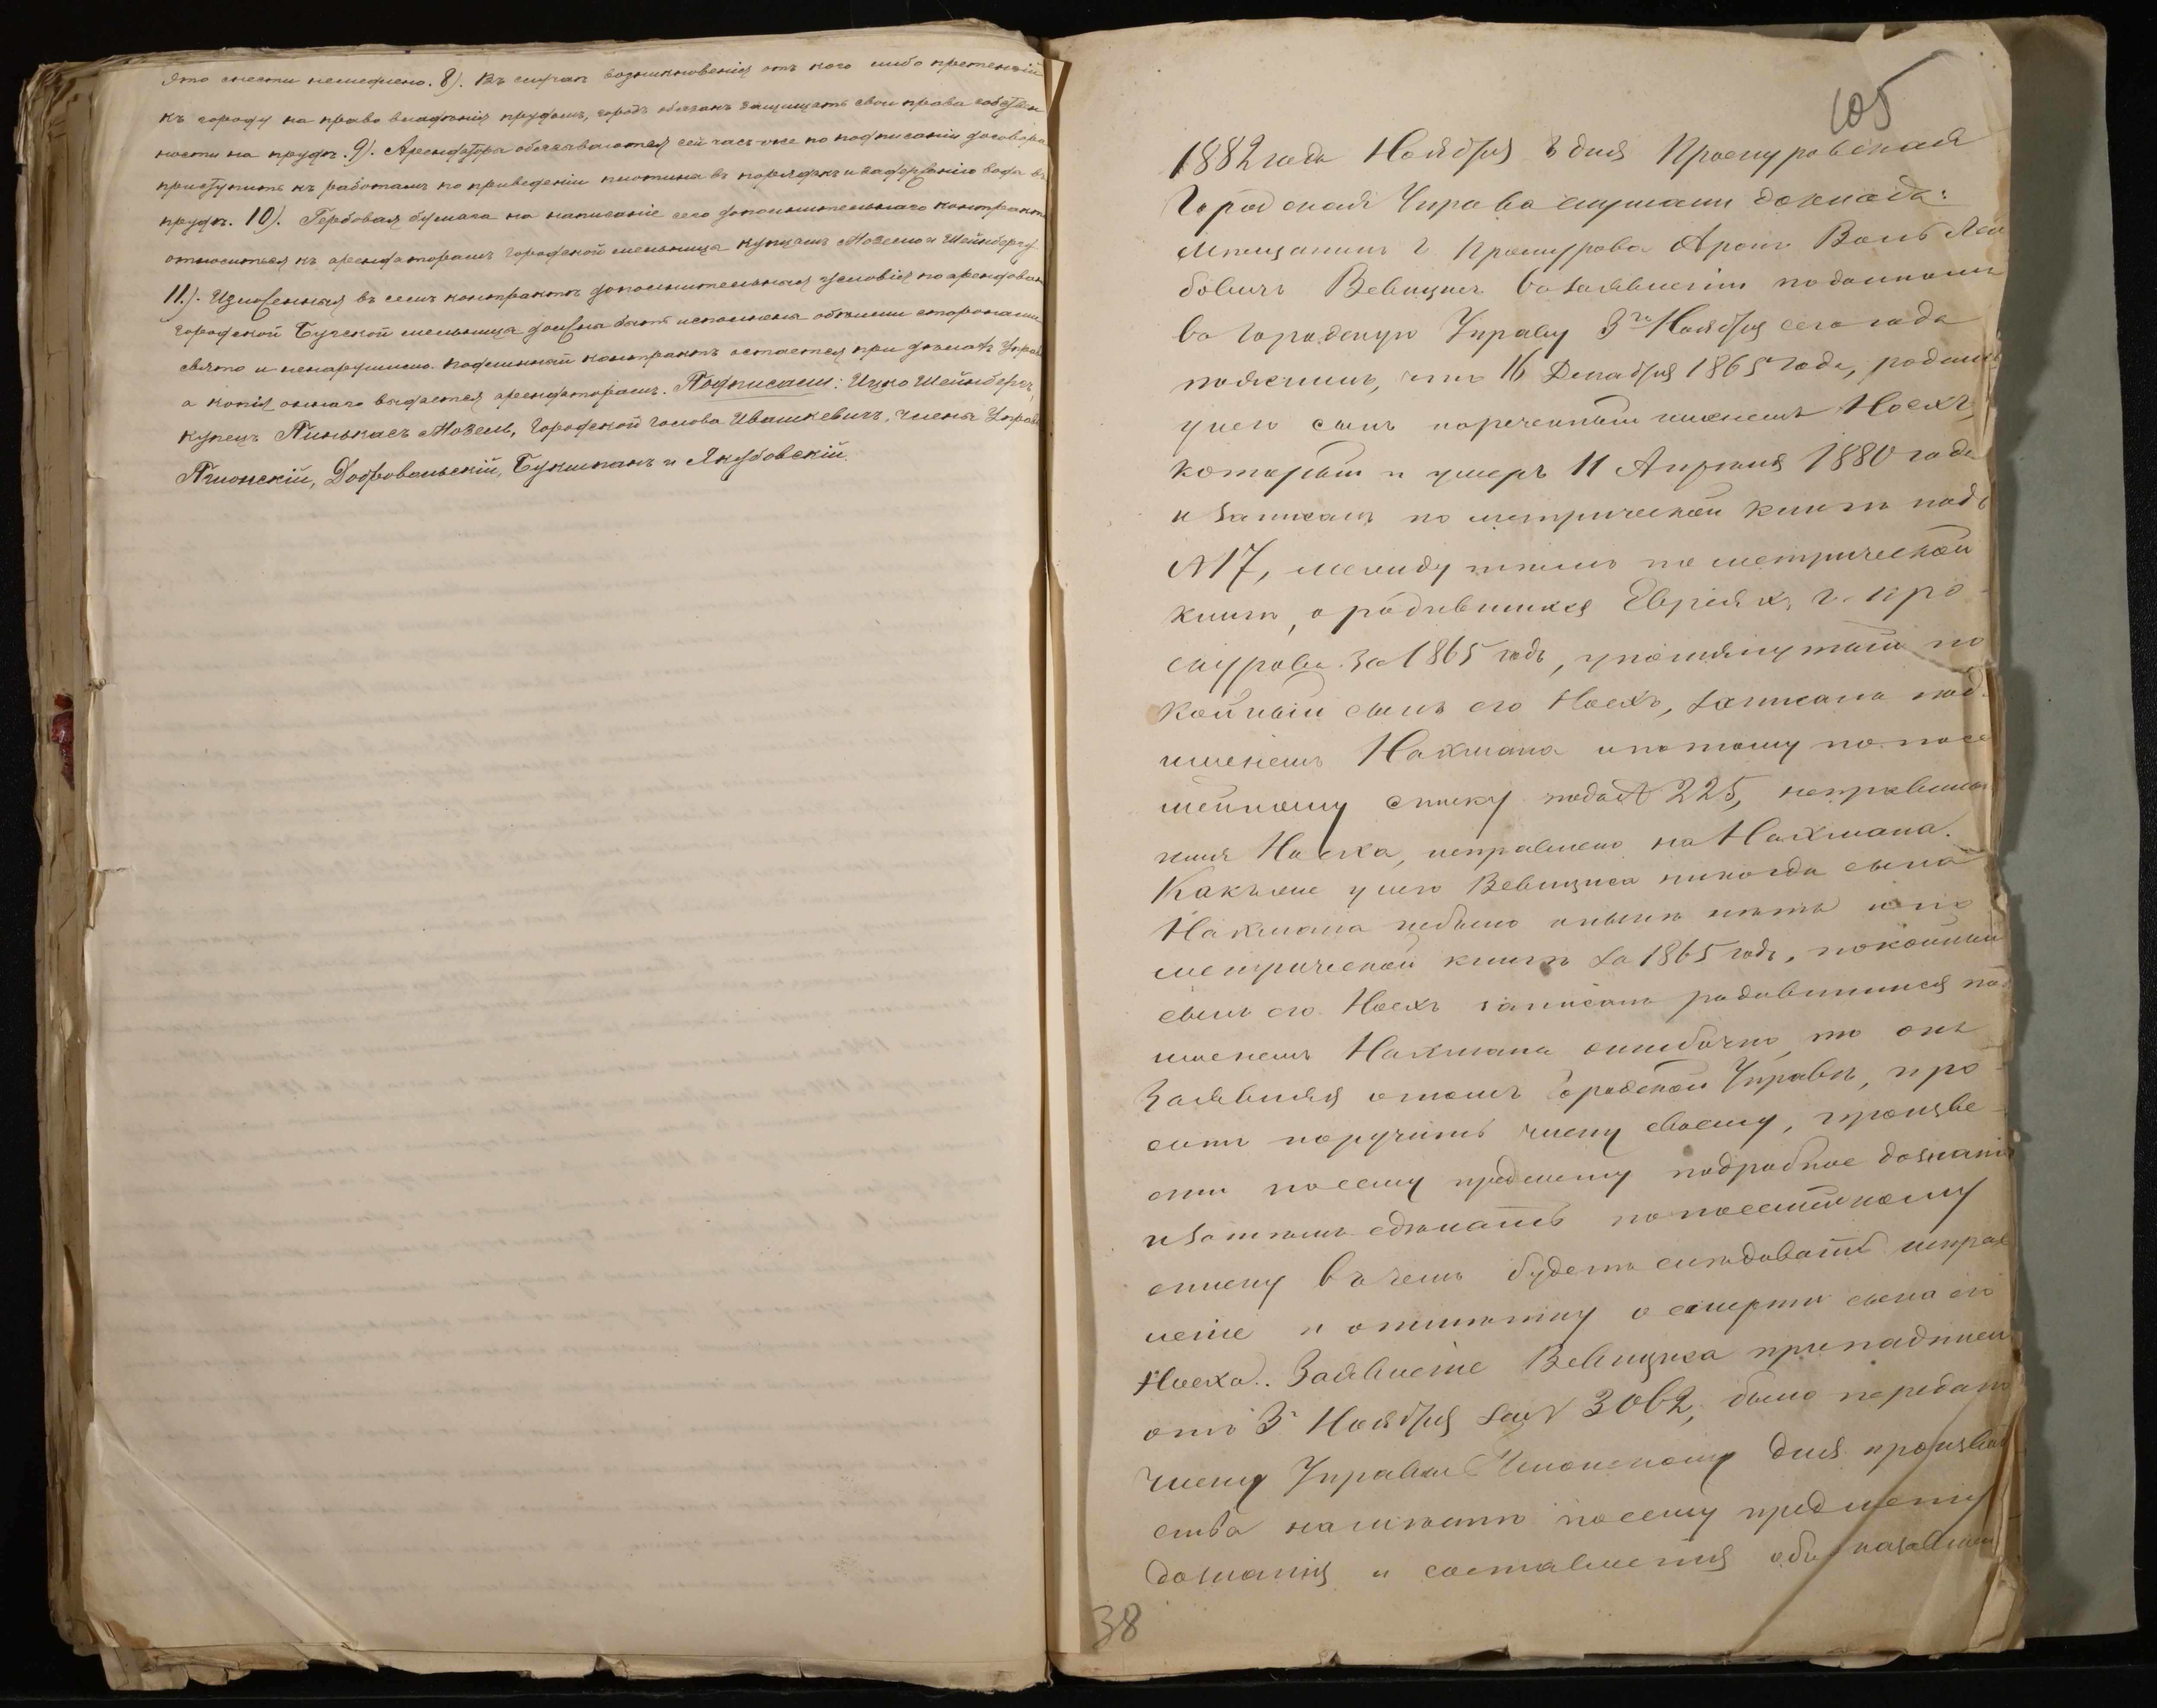 это снести немедлено. 8). Въ случаѣ возникновенія отъ кого либо претензій
къ городу на право владѣнія прудомъ, городъ обязанъ защищать свои права собствен
ности на прудъ. 9). Арендатора обязываются сей часъ-же по подписаніи договора
приступить къ работамъ по приведенію плотины въ порядокъ и задержанію воды въ
прудѣ. 10). Гербовая бумага на написаніе сего дополнительнаго контракта
относиться къ арендаторамъ городской мельницы купцамъ Мозелю и Шейнбергу.
11). Изложенныя въ семъ контрактѣ дополнительныя условія по арендован
городской Бучской мельницы должны быть исполнены обѣими сторонами
свято и ненарушимо. Подлинный контрактъ остается при дѣлахъ Управы
а копія онаго выдается арендаторамъ. Подписали: Ицко Шейнбергъ,
купецъ Пинькасъ Мозель, Городской голова Ивашкевичъ, члены Управы
Пчионскій, Добровольскій, Букшпанъ и Якубовскій.
105
1882 года Ноября дня Проскуровская
Городская Управа слушали докладъ:
Мѣщанинъ г. Проскурова Аронъ Воль Лей
бовичъ Вевицкъ въ заявленіи поданномъ
въ Городскую Управу 3го Ноября сего года
пояснилъ, что 16 Декабря 1865 года, родился
у него сынъ нареченный именемъ Ноехъ,
который и умеръ 11 Апрѣля 1880 года
и записанъ по метрической книгѣ подъ
№ 17, между тѣмъ по метрической
книгѣ, о родившихся Евреяхъ г. Про
скурова за 1865 годъ, упомянутый по
койный сынъ его Ноехъ, записанъ подъ
именемъ Нахмана и потому по посе
мейному списку подъ № 225, неправильно
имя Ноеха, исправлено на Нахмана.
Какъ же у него Вевицка никогда сына
Нахмана небыло и нынѣ нѣтъ и по
метрической книгѣ за 1865 годъ, покойный
сынъ его Ноехъ записанъ родившимся подъ
именемъ Нахмана ошибочно, то онъ
Заявляя о томъ Городской Управѣ, про
ситъ поручить члену своему, произве
сти по сему предмету подробное дознаніе
и затѣмъ сдѣлать по посемейному
списку въ чемъ будетъ слѣдовать исправ
леніе и отмѣтку о смерти сына его
Ноеха. Заявленіе Вевицка при надписи
отъ 3 Ноября за № 3062, было передано
члену Управы Пчионскому для производ
ства на мѣстѣ по сему предмету
дознанія и составленія объ оказавшем
38